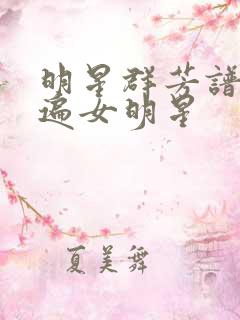 明星群芳譜
遍女明星
夏美舞